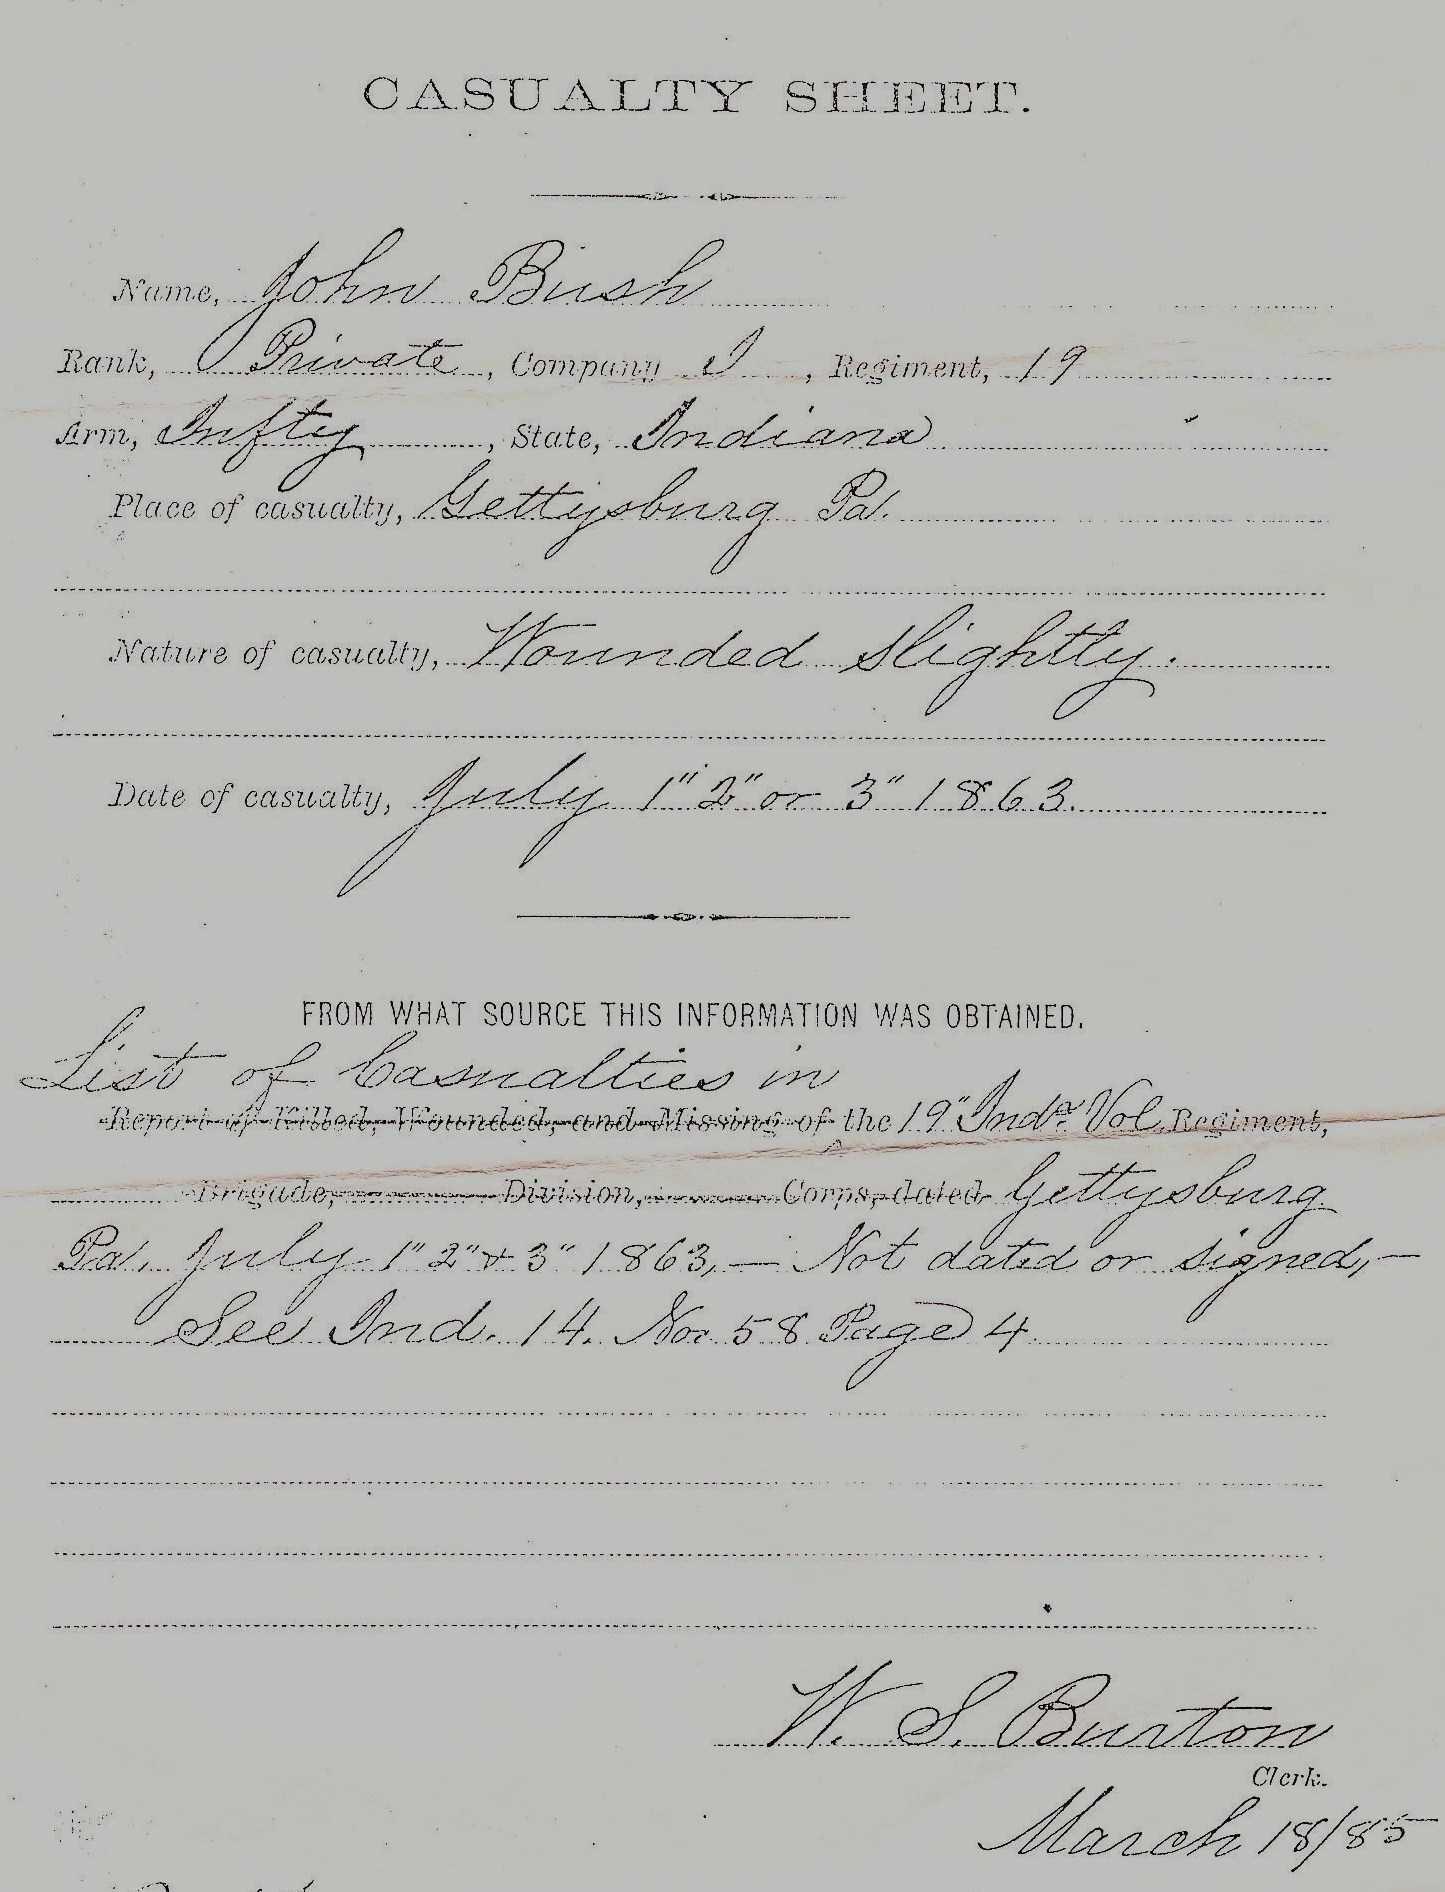 CASUALTY SHEET.
Name, John Bush
Rank, Private, Company I, Regiment, 19
Arm, Infty, State, Indiana
Place of casualty, Gettysburg Pa.
Nature of casualty, Wounded slightly.
Date of casualty, July 1" 2" or 3" 1863.
FROM WHAT SOURCE THIS INFORMATION WAS OBTAINED.
List of Casualties in
Report of Killed, Wounded, and Missing of the 19" Inda Vol. Regiment,
Brigade, Division, Corps, dated Gettysburg
Pa. July 1" 2" & 3" 1863, — Not dated or signed, —
See Ind. 14. No. 58 Page 4
W. S. Burton
Clerk.
March 18/85